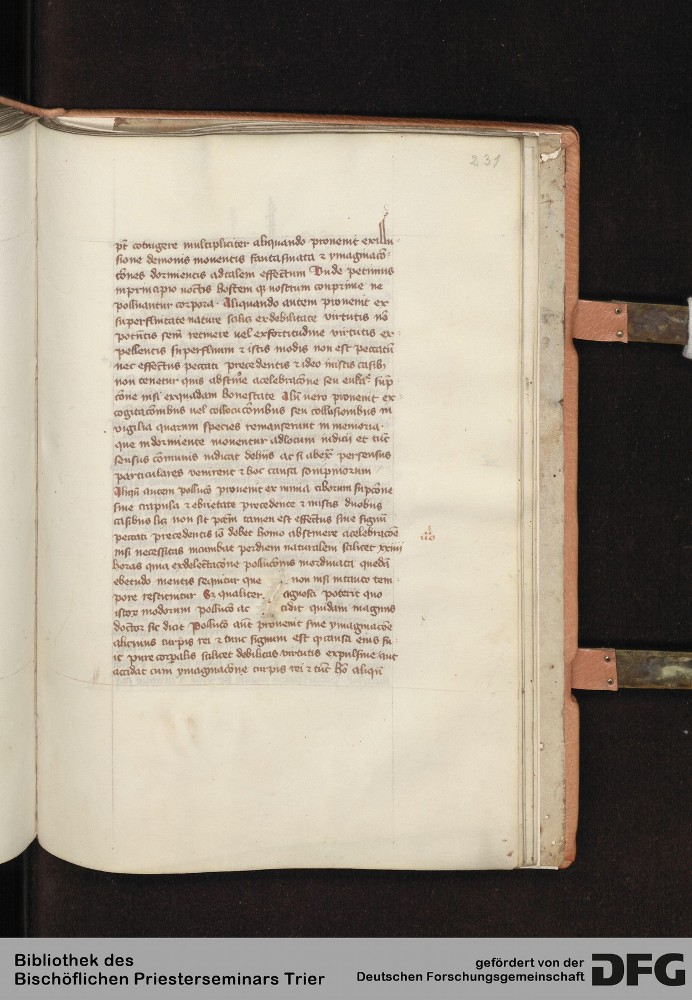 231
pt contingere multipliciter aliquando provenit ex illu
sione demonis moventis fantasmata et ymaginacō
cōnes dormientis ad talem effectum Unde petimus
in principio noctis hostem qz nostrum conprime ne
polluantur corpora Aliquando autem provenit ex
superfluitate nature scilicet ex debilitate virtutis nō
potentis sem retinere vel ex fortitudine virtutis ex
pellentis superfluum et istis modis non est peccatū
nec effectus peccati precedentis et ideo in istis casibz
non tenetur quis abstine a celebracōne seu
cōne nisi ex quadam honestate Aliqn vero provenit ex
cogitacōnibus vel collocucōnibus seu collusionibus in
vigilia quarum species remanserunt in memoria
que in dormiente moventur ad locum iudicij et tūc
sensus cōmunis iudicat de hijs ac si per sensus
particulares venirent et hoc causa sompniorum
Aliqn autem pollucō provenit ex nimia ciborum sūpcōne
sive crapula et ebrietate precedente et in istis duobus
casibus licz non sit pctm tamen est effectus sive signū
peccati precedentis iō debet homo abstinere a celebracōne
nisi necessitas incumbat per diem naturalem scilicet xxiiij
horas quia ex delectacōne pollucōnis inordinata quedā
ebetudo mentis sequitur que non nisi in tanto tem
pore restituitur Sz qualiter cignosci poterit quo
istorz modorum pollucō ac cidit quidam magnus
doctor sic dicit Pollucō aūt provenit sine ymaginacōne
alicuius turpis rei et tunc signum est qz causa eius fu
it pure corpalis scilicet debilitas virtutis expulsive aut
accidat cum ymaginacōne turpis rei et tūc hō aliqn
Bibliothek des
Bischöflichen Priesterseminars Trier
gefördert von der
Deutschen Forschungsgemeinschaft
DFG